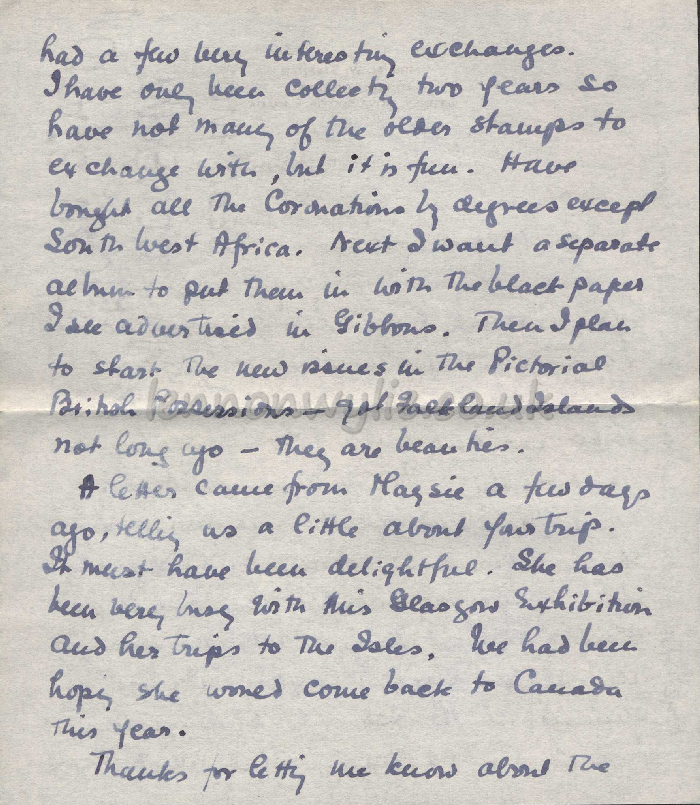 had a few very interesting exchanges.
I have only been collecting two years so
have not many of the older stamps to
exchange with, but it is fun. Have
bought all the Coronations by degrees except
South West Africa. Next I want a separate
album to put them in with the black paper
I see advertised in Gibbons. Then I plan
to start the new issues in the Pictorial
British Possessions — got Falkland Islands
not long ago — they are beauties.
A letter came from Maysie a few days
ago, telling us a little about your trip.
It must have been delightful. She has
been very busy with this Glasgow Exhibition
and her trips to the Isles. We had been
hoping she would come back to Canada
this year.
Thanks for letting me know about the